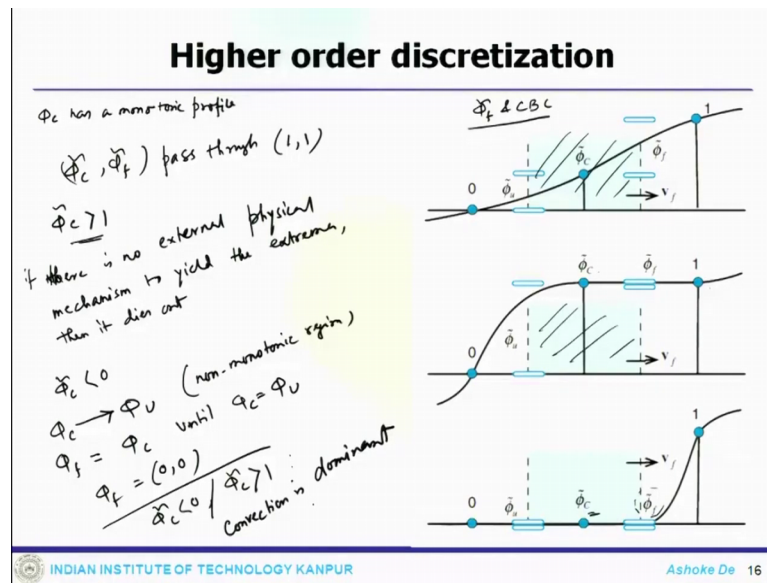 Higher order discretization
Φc has a monotonic profile
(Φ̃c, Φ̃f) pass through (1,1)
Φ̃c > 1
if there is no external physical
mechanism to yield the extrema,
then it dies out
Φ̃c < 0
Φc → ΦU (non-monotonic region)
Φf = Φc until Φc = ΦU
Φf = (0,0)
Φ̃c < 0 / Φ̃c > 1
Convection is dominant
Φ̃f & CBC
0 ϕ̃u ϕ̃C ϕ̃f 1
vf
0 ϕ̃u ϕ̃C ϕ̃f 1
vf
0 ϕ̃u ϕ̃C ϕ̃f 1
vf
INDIAN INSTITUTE OF TECHNOLOGY KANPUR
Ashoke De 16